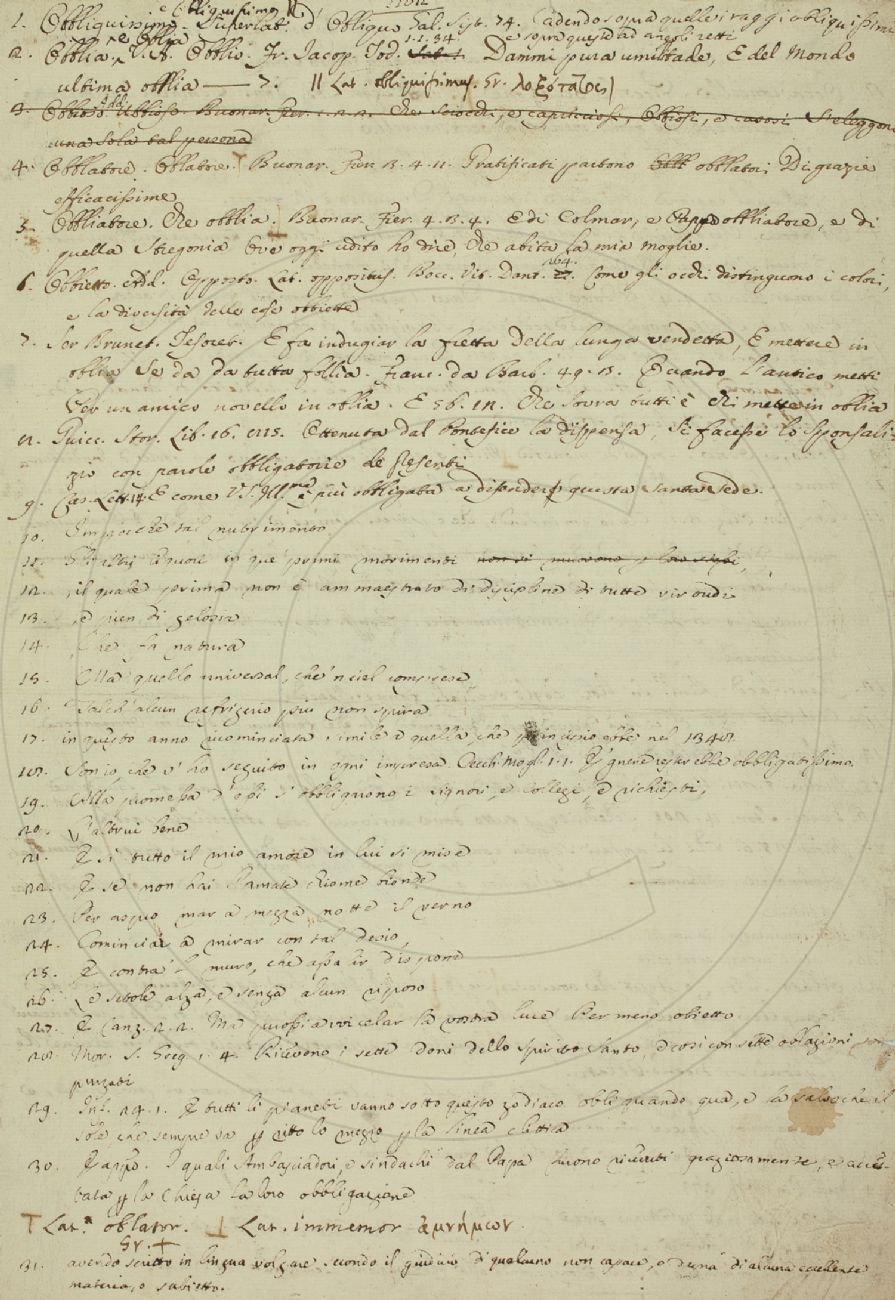 e Obliquissimo
1. Obbliquissimo. Superlat. d' Obliquo Gal. Sist. 74. Cadendo sopra quelle i raggi obliquissimi
e sopra questa ad angoli retti
2. Obblia, e Oblia V. A. Obblio. Fr. Jacop. Tod. Dammi pura umiltade, E del Mondo
ultima obblia — 7. || Lat. obliquissimus. Gr. λοξότατος)
3. Obbioso Add. Ubbioso. Buonar. Fier. Che sciocchi, e capricciosi, Obbiosi, e Si leggono
una sola tal persona
4. Obblatore. Oblatore. T Buonar. Fier. 3. 4. 11. Gratificati partono obblatori Di grazie
efficacissime
5. Obbliatore. Che obblia. ⊥ Buonar. Fier. 4. 3. 4. E di Colmar, e obbliatore, e di
quella Stregonia Ove oggi udito ho dire, Che abita la mia moglie.
6. Obbietto. Add. Opposto. Lat. oppositus. Bocc. Vit. Dant. 264. Come gli occhi distinguono i colori,
e la diversità delle cose obbiette
7. Ser Brunet. Tesoret. E fa indugiar la fretta Della lunga vendetta, E mettere in
oblia Se da da tutta follia. Franc. da Barb. 49. 13. Quando l'antico metti
Per un amico novello in oblia. E 56. Che sovra tutti è chi mette in oblia
8. Guicc. Stor. lib. 16. Ottenuta dal Pontefice la dispensa, si facesse lo sponsali-
zio con parole obbligatorie de presenti
9. Cas. Lett. 14. E come V. S. Ill.ma è più obbligata a difender questa santa sede.
10. Imperochè tal nutrimento
11. in que' primi movimenti non si muovono
12. , il quale prima non è ammaestrato di disciplina di tutte virtudi
13. , e pien di gelosia
14. , Che fa natura
15. Ma quello universal, che 'n ciel comprese
16. Talch' alcun refrigerio più non spira
17. in questo anno ricominciata simile a quella che principio ebbe nel 1348.
18. Son io, che v' ho seguito in ogni impresa. Cecchi Mogl. 1. 1. E' gnene resterebbe obbligatissimo.
19. Alla promessa d' essi si obbligarono i signori, e Collegi, e richiesti,
20. l'altrui bene
21. E sì tutto il mio amore in lui si mise
22. E se non hai l'amate chiome bionde
23. Per aspro mar a mezza notte il verno
24. Cominciai a mirar con tal desio,
25. E contra 'l muro, che assalir dispone
26. Le scale alza, e senza alcun riposo
27. E Canz. 2. 2. Ma può ssi a vvicelar la vostra luce Per meno obietto.
28. Mor. S. Greg. 1. 4. Ricevono i sette doni dello Spirito Santo, e così con sette oblazioni son
purgati
29. Int. 24. 1. E tutti li pianeti vanno sotto questo zodiaco obliquando qua, e là salvo che il
sole che sempre va per ritto lo mezzo per la linea
30. E appo. I quali Ambasciadori, e sindachi dal Papa furono ricevuti graziosamente, e accet-
tata per la Chiesa la loro obbligazione
T Lat. oblator. ⊥ Lat. immemor ἀμνήμων.
Gr. +
31. avendo scritto in lingua volgare secondo il giudicio di qualcuno non capace, o d'una, di alcuna eccellente
materia, o subietto.